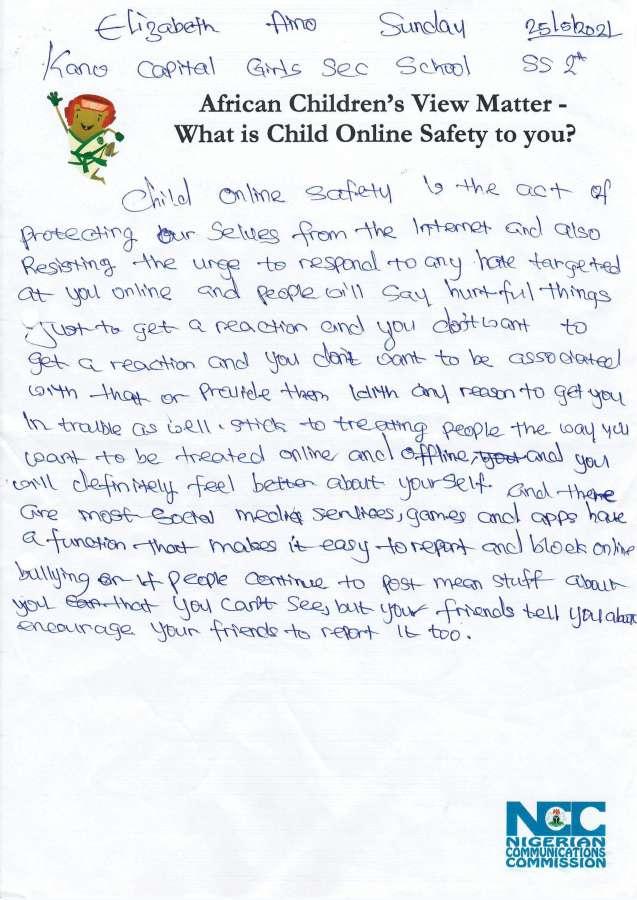 Elizabeth Aino Sunday 25/5/2021
Kano Capital Girls Sec School SS 2
African Children's View Matter -
What is Child Online Safety to you?
Child online safety is the act of
protecting our selves from the Internet and also
Resisting the urge to respond to any hate targeted
at you online and people will say hurtful things
Just to get a reaction and you don't want to
get a reaction and you don't want to be associated
with that or Provide them with any reason to get you
In trouble as well. stick to treating people the way you
want to be treated online and offline, and you
will definitely feel better about yourself. And there
are most social media services, games and apps have
a function that makes it easy to report and block online
bullying or if people continue to post mean stuff about
you that you can't see, but your friends tell you about
encourage your friends to report it too.
NCC
NIGERIAN
COMMUNICATIONS
COMMISSION